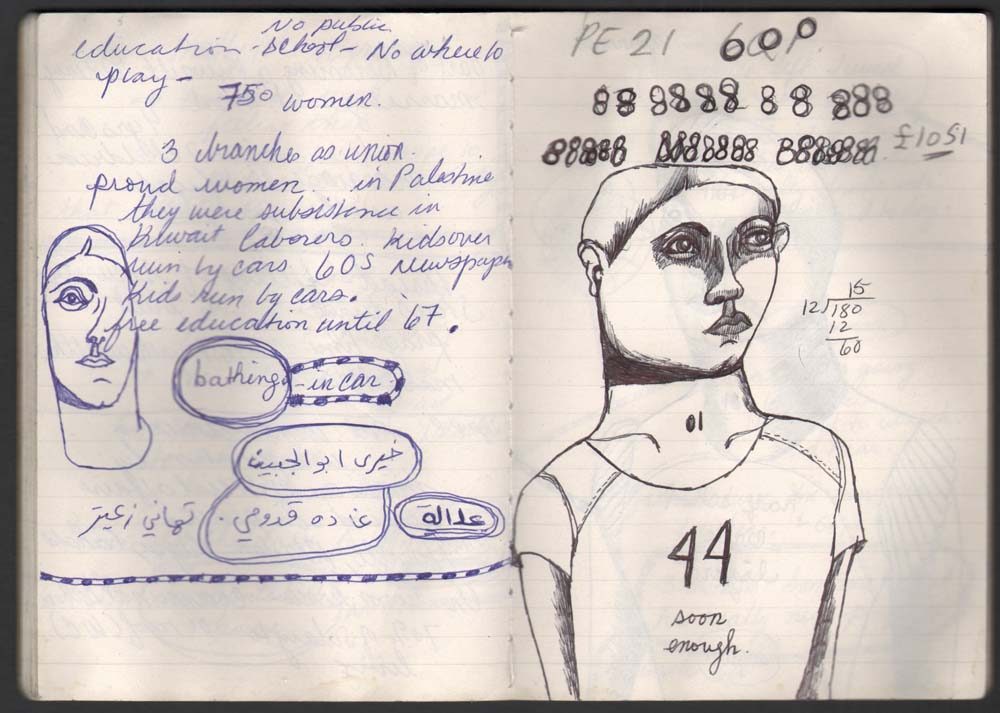 No public
education - school - No where to
play -
750 women.
3 branches as union.
proud women. in Palestine
they were subsistence in
Kuwait laborers. kids over
run by cars 60s newspaper
kids run by cars.
free education until '67.
bathing - in car
خيرى ابو الجبين
تهاني زعيتر
غاده قدومي
عدالة
PE 21 60P.
88 88888 88 888
£1051
15
12)180
12
60
01
44
soon
enough.